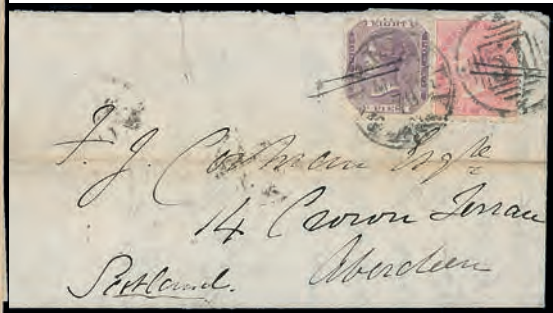 F. J. Cochran Esqre
14 Crown Terrace
Aberdeen
Scotland.